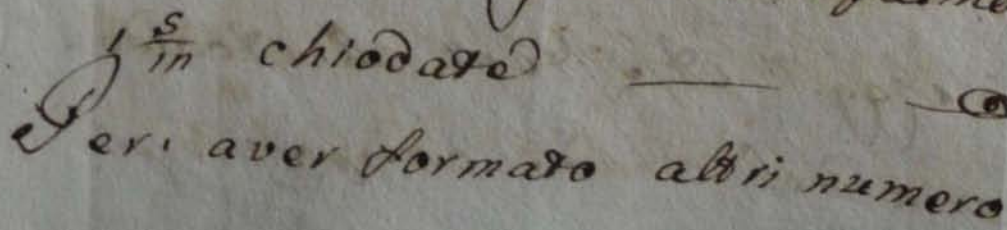 s/m chiodate
Per. aver formato altri numero